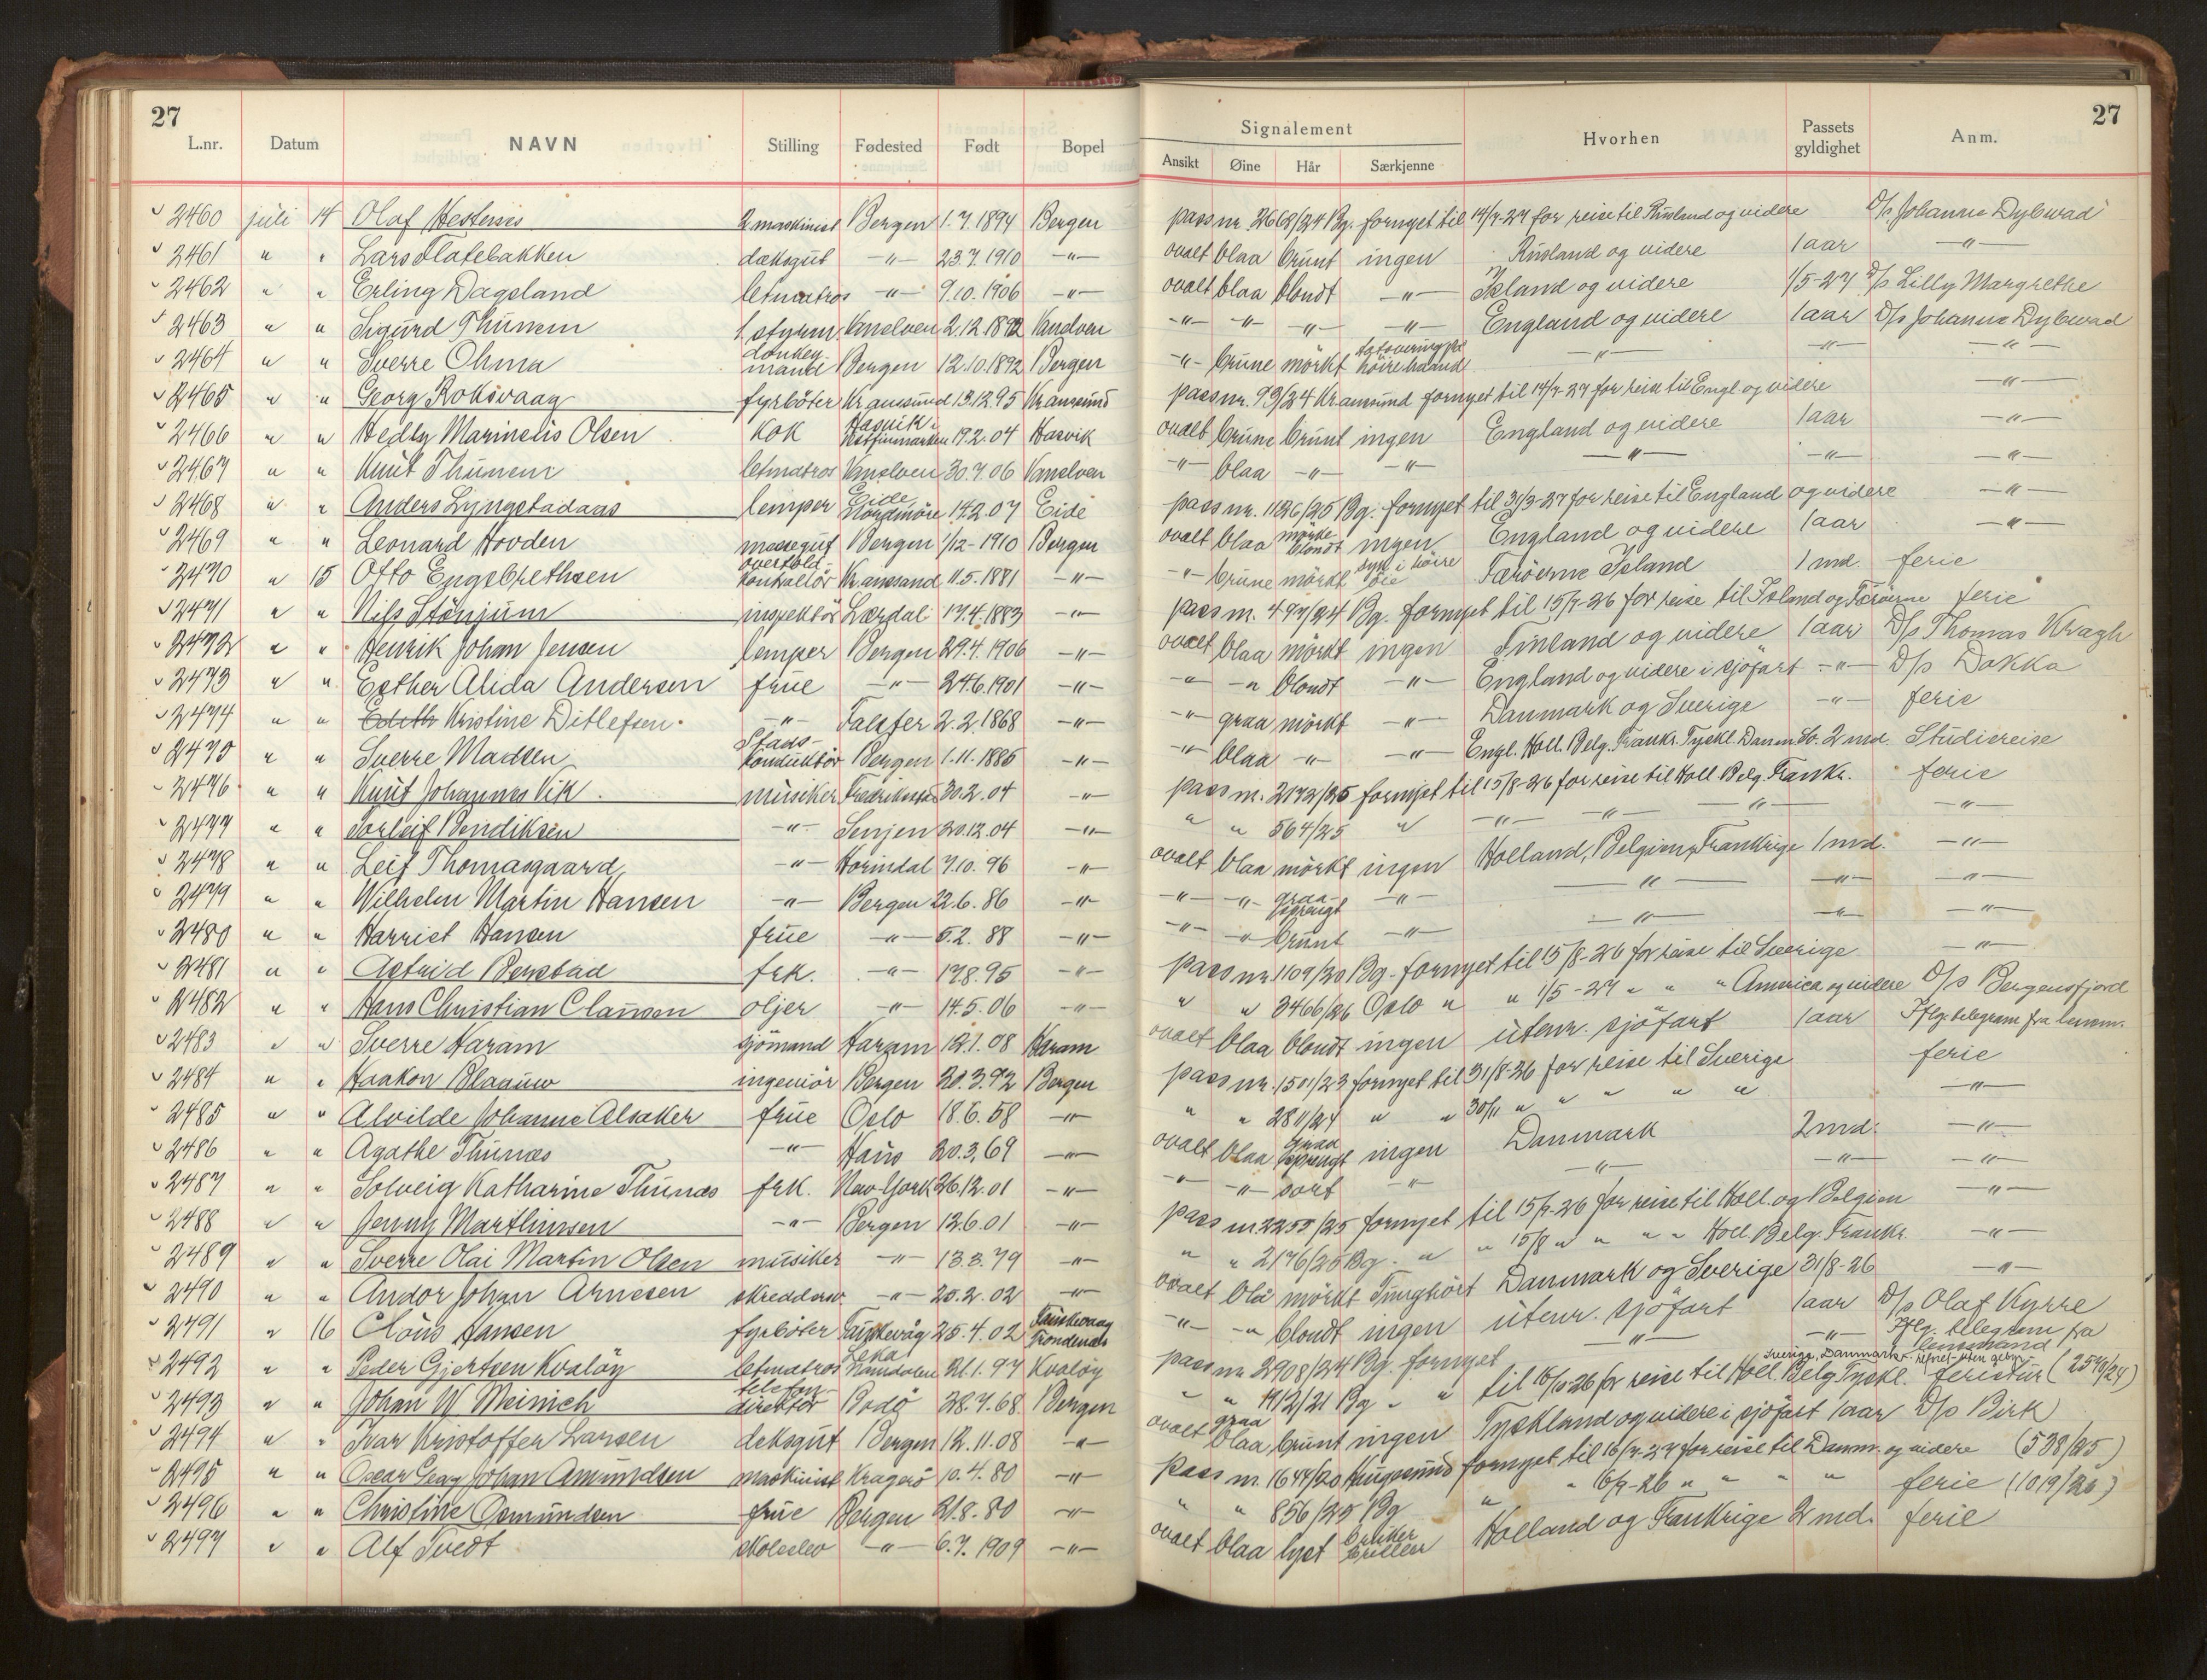 27
L.nr. Datum NAVN Stilling Fødested Født Bopel
2460 juli 14 Olaf 2 maskinist Bergen 1.7.1894 Bergen
2461 " " Lars Flatebakken dæksgut -"- 23.7.1910 -"-
2462 " " Erling Dagsland letmatros -"- 9.10.1906 -"-
2463 " " Sigurd Thunem 1. styrm. Vanelven 2.12.1892 Vanelven
2464 " " Sverre Ohma donkeymand Bergen 12.10.1892 Bergen
2465 " " Georg Roksvaag fyrbøter Kr.ansund 13.12.95 Kr.ansund
2466 " " Hedly Marinelis Olsen kok Hasvik i Vestfinmarken 19.2.04 Hasvik
2467 " " Knut Thunem letmatros Vanelven 30.7.06 Vanelven
2468 " " Anders Lyngstadaas lemper Eide Nordmöre 14.2.07 Eide
2469 " " Leonard Hovden messegut Bergen 1/12-1910 Bergen
2470 " 15 Otto Engebrethsen overtoldkontrollör Kr.anssand 11.5.1881 -"-
2471 " " Nils Stönjum inspektör Lærdal 17.4.1883 -"-
2472 " " Henrik Johan Jensen lemper Bergen 29.4.1906 -"-
2473 " " Esther Alida Andersen frue -"- 24.6.1901 -"-
2474 " " Edith Kristine Ditlefsen -"- Falster 2.2.1868 -"-
2475 " " Sverre Madsen Stads-konduktör Bergen 1.11.1885 -"-
2476 " " Knut Johannes Vik musiker Fredrikstad 30.2.04 -"-
2477 " " Torleif Bendiksen -"- Senjen 20.12.04 -"-
2478 " " Leif Thomasgaard -"- Hornindal 7.10.96 -"-
2479 " " Wilhelm Martin Hansen -"- Bergen 22.6.86 -"-
2480 " " Harriet Hansen frue -"- 5.2.88 -"-
2481 " " Astrid frk. -"- 17.8.95 -"-
2482 " " Hans Christian Clausen oljer -"- 14.5.06 -"-
2483 " " Sverre Haram sjömand Haram 12.1.08 Haram
2484 " " Haakon Blaauw ingeniör Bergen 20.3.92 Bergen
2485 " " Alvilde Johanne Alsaker frue Oslo 18.6.58 -"-
2486 " " Agathe Thunæs -"- Haus 20.3.69 -"-
2487 " " Solveig Katharine Thunæs frk. New York 26.12.01 -"-
2488 " " Jenny Marthinsen -"- Bergen 12.6.01 -"-
2489 " " Sverre Olai Martin Olsen musiker -"- 13.3.79 -"-
2490 " " Andor Johan Arnesen skreddersv. -"- 20.2.02 -"-
2491 " 16 Claus Hansen fyrböter Fauskevåg 25.4.02 Fauskevaag Trondenæs
2492 " " Peder Gjertsen Kvalöy letmatros Leka Namdalen 21.1.97 Kvalöy
2493 " " Johan W Meinich telefondirektör Bodö 28.7.68 Bergen
2494 " " Ivar Kristoffer Larsen deksgut Bergen 12.11.08 -"-
2495 " " Oscar Georg Johan Amundsen maskinist Kragerö 10.4.80 -"-
2496 " " Christine Osmundsen frue Bergen 21.8.80 -"-
2497 " " Alf Tvedt skoleelev -"- 6.7.1909 -"-
27
Signalement Hvorhen Passets gyldighet Anm.
Ansikt Øine Hår Særkjenne
pass nr. 2668/24 Bg. fornyet til 14/7-27 for reise til Rusland og videre D/s Johanne Dybwad
ovalt blaa brunt ingen Rusland og videre 1 aar -"-
ovalt blaa blondt -"- Island og videre 1/5-27 D/s Lilly Margrethe
-"- -"- -"- -"- England og videre 1 aar D/s Johanne Dybwad
-"- brune mörkt tatovering på höire haand -"- -"- -"-
pass nr. 99/24 Kr.ansund fornyet til 14/7-27 for reise til Engl. og videre -"-
ovalt brune brunt ingen England og videre 1 aar -"-
-"- blaa -"- -"- -"- -"- -"-
pass nr. 1126/25 Bg. fornyet til 31/3-27 for reise til England og videre -"-
ovalt blaa mörke-blondt ingen England og videre 1 aar -"-
-"- brune mörkt syk i höire öie Færöerne Island 1 md. ferie
pass nr. 497/24 Bg. fornyet til 15/9-26 for reise til Island og Færöerne ferie
ovalt blaa mörkt ingen Finland og videre 1 aar D/s Thomas Kragh
-"- -"- blondt -"- England og videre i sjöfart -"- D/s Dokka
-"- graa mörkt -"- Danmark og Sverige -"- ferie
-"- blaa -"- -"- Engl. Holl. Belg. Frankr. Tyskl. Danm. Sv. 2 md. Studiereise
pass nr. 2172/25 fornyet til 15/8-26 for reise til Holl. Belg. Frankr. ferie
" " 564/25 " -"- -"- -"- -"-
ovalt blaa mörkt ingen Holland, Belgien, Frankrige 1 md. -"-
-"- -"- graa-sprengt -"- -"- -"- -"-
-"- -"- brunt -"- -"- -"- -"-
pass nr. 1109/20 Bg. fornyet til 15/8-26 for reise til Sverige -"-
" " 3466/26 Oslo " " 1/5-27 " " " America og videre D/s Bergensfjord
ovalt blaa blondt ingen utenr. sjöfart 1 aar Iflg. telegram fra lensm.
pass nr. 1501/23 fornyet til 31/8-26 for reise til Sverige ferie
" " 2811/24 " " 30/11 " " " " " -"-
ovalt blaa graa sprengt ingen Danmark 2 md. -"-
-"- -"- sort -"- -"- -"- -"-
pass nr. 2255/25 fornyet til 15/9-26 for reise til Holl. og Belgien -"-
" " 2176/25 Bg. " " 15/8 " " " " Holl. Belg. Frankr. -"-
ovalt blå mörkt Tunghört Danmark og Sverige 31/8-26 -"-
-"- -"- blondt ingen utenr. sjöfart 1 aar D/s Olaf Kyrre
pass nr. 2908/24 Bg. fornyet -"- -"- Iflg. telegram fra lensmand
" " 1912/21 Bg " " til 16/10-26 for reise til Holl. Belg. Tyskl. Sverige, Danmark feristur (2540/24)
ovalt graa blaa brunt ingen Tyskland og videre i sjöfart 1 aar D/s Birk
pass nr. 1644/20 Haugesund fornyet til 16/7-27 for reise til Danm. og videre (538/25)
" " 856/25 Bg " " 16/9-26 " " " " ferie (1019/26)
ovalt blaa lyst bruker briller Holland og Frankrige 2 md. ferie